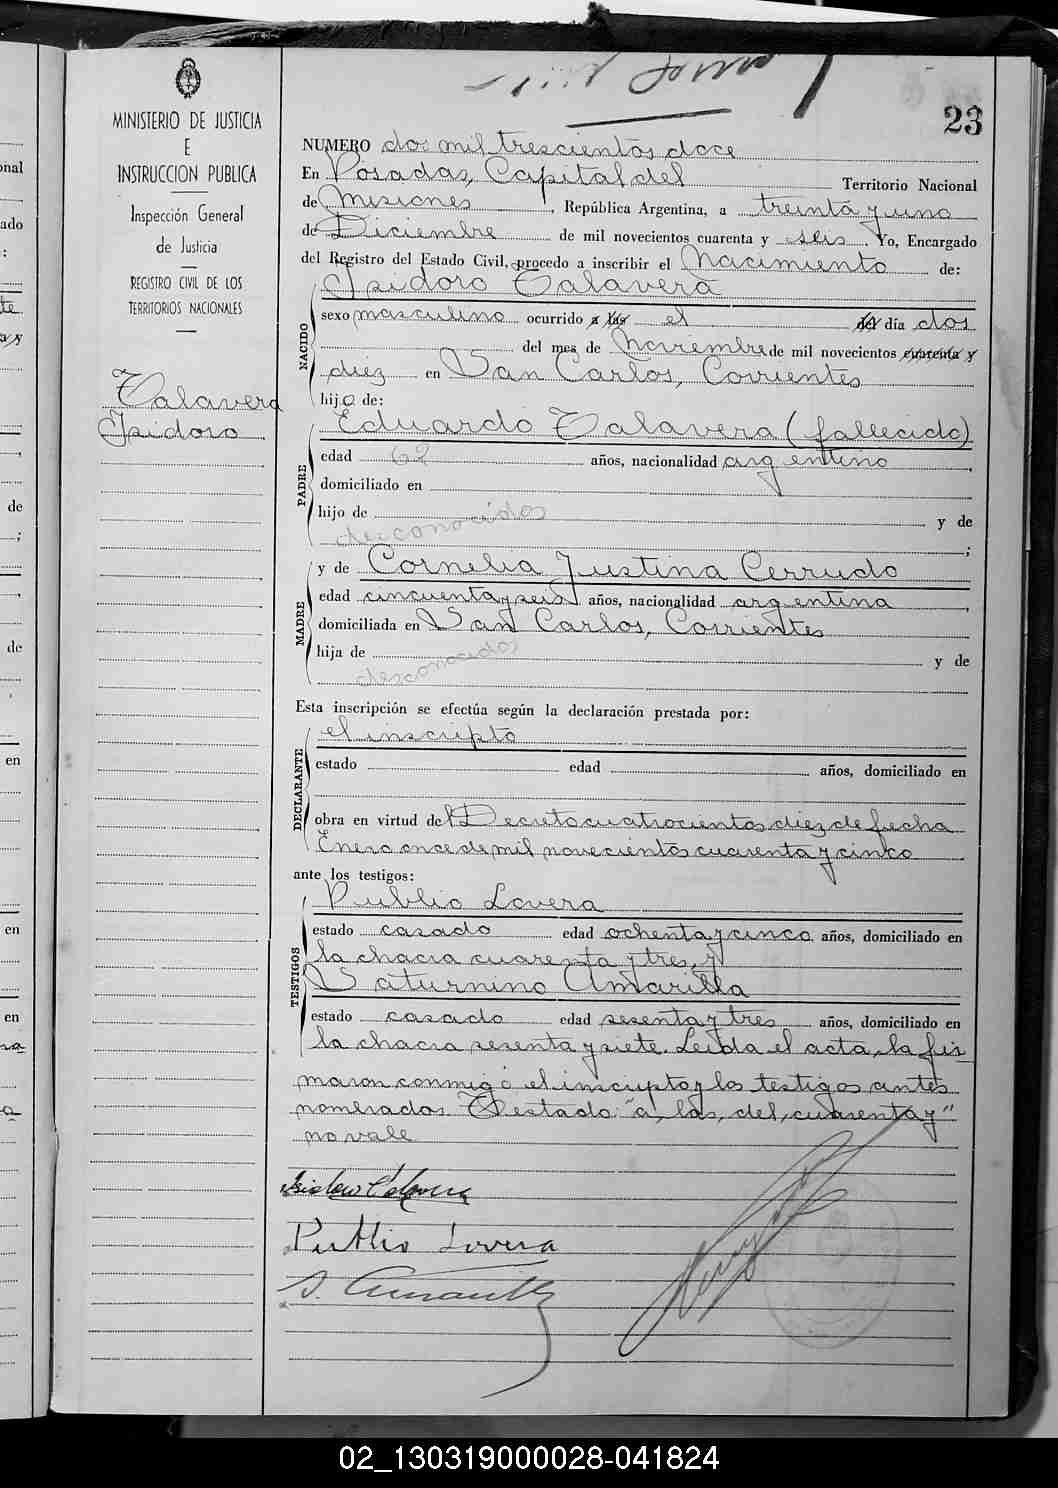 23
MINISTERIO DE JUSTICIA
E
INSTRUCCION PUBLICA
Inspección General
de Justicia
REGISTRO CIVIL DE LOS
TERRITORIOS NACIONALES
Talavera
Isidoro
NUMERO dos mil trescientos doce
En Posadas, Capital del Territorio Nacional
de Misiones, República Argentina, a treinta y uno
de Diciembre de mil novecientos cuarenta y seis. Yo, Encargado
del Registro del Estado Civil, procedo a inscribir el Nacimiento de:
NACIDO
Isidoro Talavera
sexo masculino ocurrido a las el del día dos
del mes de Noviembre de mil novecientos cuarenta y
diez en San Carlos, Corrientes
hijo de:
PADRE
Eduardo Talavera (fallecido)
edad 62 años, nacionalidad argentino,
domiciliado en
hijo de desconocidos y de
;
MADRE
y de Cornelia Justina Cerrudo
edad cincuenta y seis años, nacionalidad argentina,
domiciliada en San Carlos, Corrientes
hija de desconocidos y de
Esta inscripción se efectúa según la declaración prestada por:
DECLARANTE
el inscripto
estado edad años, domiciliado en
obra en virtud del Decreto cuatrocientos diez de fecha
Enero once de mil novecientos cuarenta y cinco
ante los testigos:
TESTIGOS
Publio Lovera
estado casado edad ochenta y cinco años, domiciliado en
la chacra cuarenta y tres, y
Saturnino Amarilla
estado casado edad sesenta y tres años, domiciliado en
la chacra sesenta y siete. Leída el acta, la fir
maron conmigo el inscripto y los testigos antes
nombrados. Testado: "a, las, del, cuarenta y"
no vale
Isidoro Talavera
Publio Lovera
S. Amarilla
02_130319000028-041824